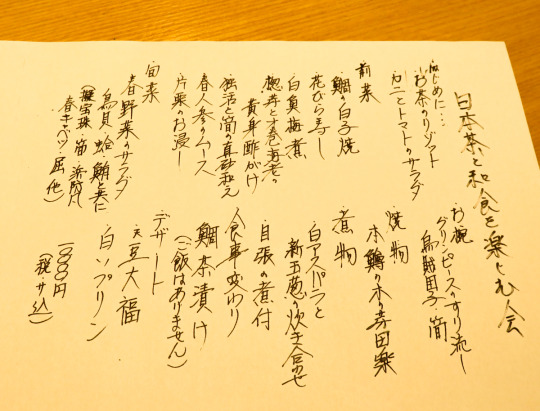 日本茶と和食を楽しむ会
はじめに…
お茶のリゾット
カニとトマトのサラダ
前菜
鯛の白子焼
花びら寿し
白魚梅煮
惣菜と才巻海老の
黄身酢がけ
独活と筍の真砂和え
春人参のムース
片栗のお浸し
旬菜
春野菜のサラダ
鳥貝・蛤・鮪と共に
春キャベツ・
他)
・お椀
グリンピースのすり流し
筍
・焼物
本鱒の木の芽田楽
・煮物
白アスパラと
新玉葱の炊き合わせ
・目張の煮付
・食事変わり
鯛茶漬け
(ご飯はありません)
・デザート
豆大福
白いプリン
(税・サ込)